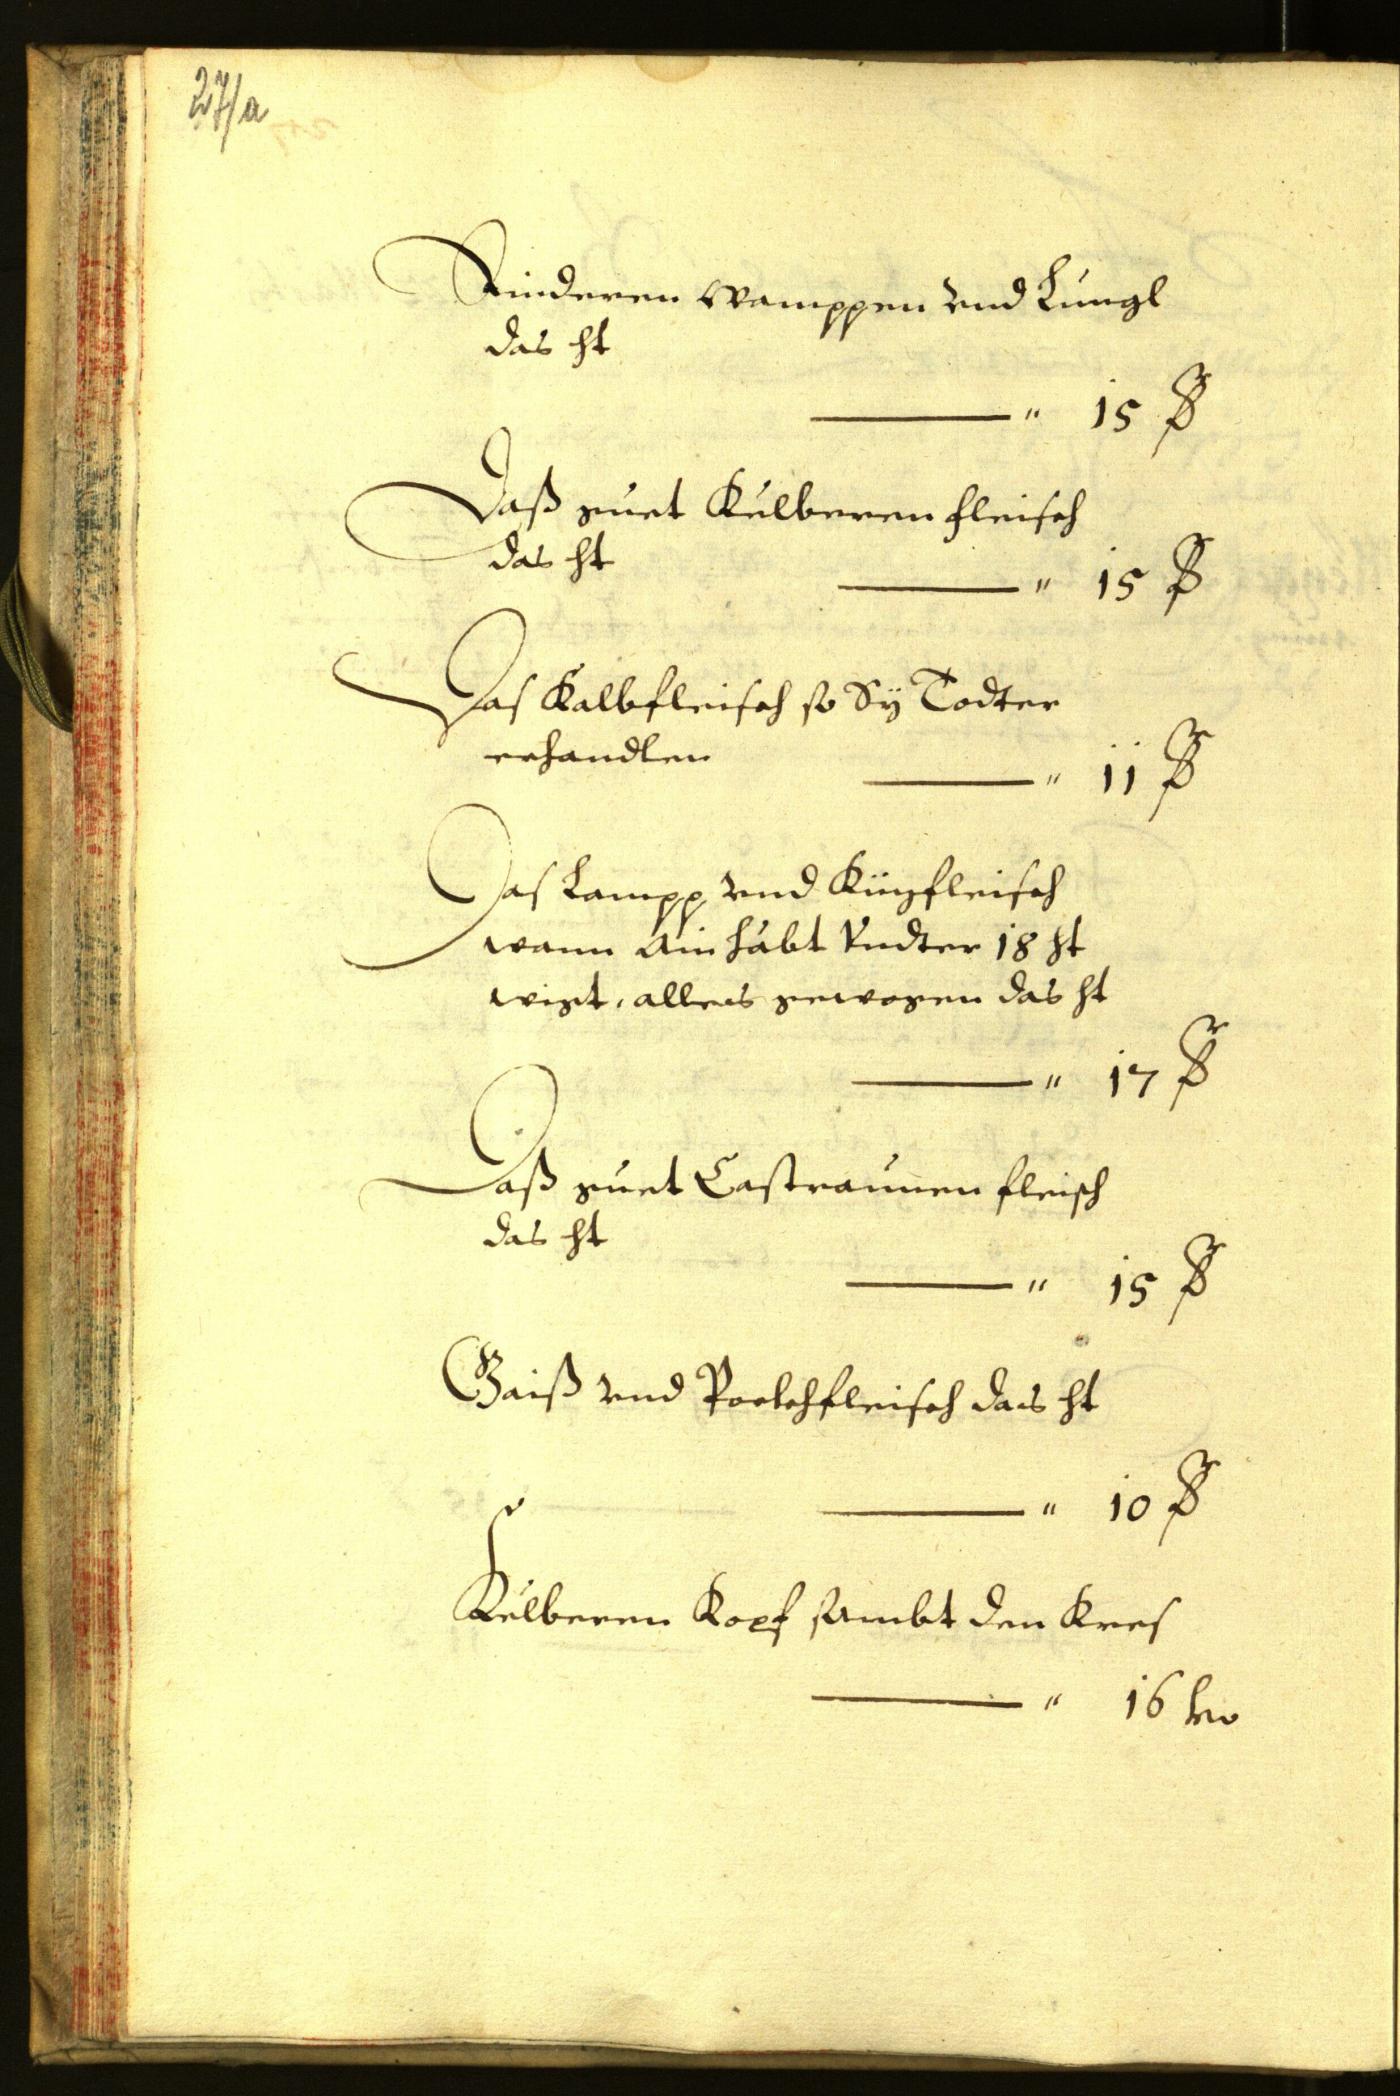 27/a
Rinderen Wamppen vnd Lungl
das ℔
——— " 15 ₰
Daß guet Kelberen fleisch
das ℔
——— " 15 ₰
Das Kalbfleisch so Sÿ Todter
erhandlen
——— " 11 ₰
Das Lampp vnd Küzfleisch
wann ain habt Vndter 18 ℔
wigt, alles gewogen das ℔
——— " 17 ₰
Daß guet Castraunen fleisch
das ℔
——— " 15 ₰
Gaiß vnd Pockhfleisch das ℔
——— " 10 ₰
Kelberen Kopf sambt den Kres
——— " 16 kr